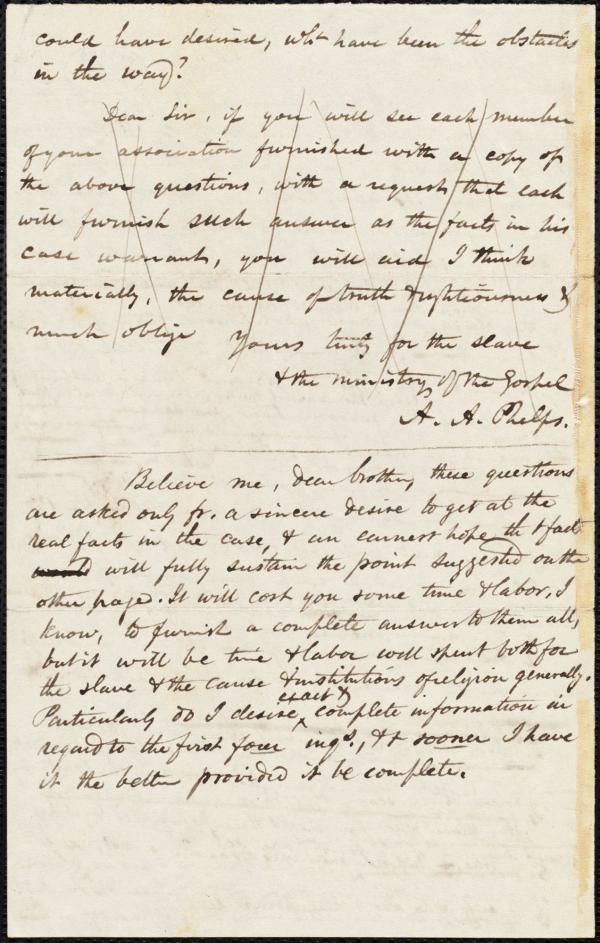 could have desired, wht have been the obstacles
in the way?
Dear Sir, if you will see each member
of your association furnished with a copy of
the above questions, with a request that each
will furnish such answer as the facts in his
case warrants, you will aid I think
materially, the cause of truth & righteousness &
much oblige Yours truly for the slave
& the ministry of the Gospel
A. A. Phelps.
Believe me, dear brother, these questions
are asked only fr. a sincere desire to get at the
real facts in the case, & an earnest hope tht facts
will fully sustain the point suggested on the
other page. It will cost you some time & labor, I
know, to furnish a complete answer to them all,
but it will be time & labor well spent both for
the slave & the cause & institutions of religion generally.
Particularly do I desire exact & complete information in
regard to the first four inqs., & t sooner I have
it the better provided it be complete.